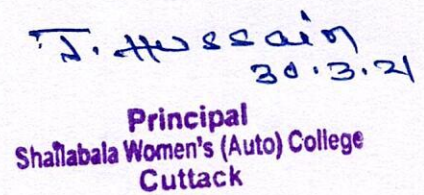 J. Hussain
30.3.21
Principal
Shailabala Women's (Auto) College
Cuttack